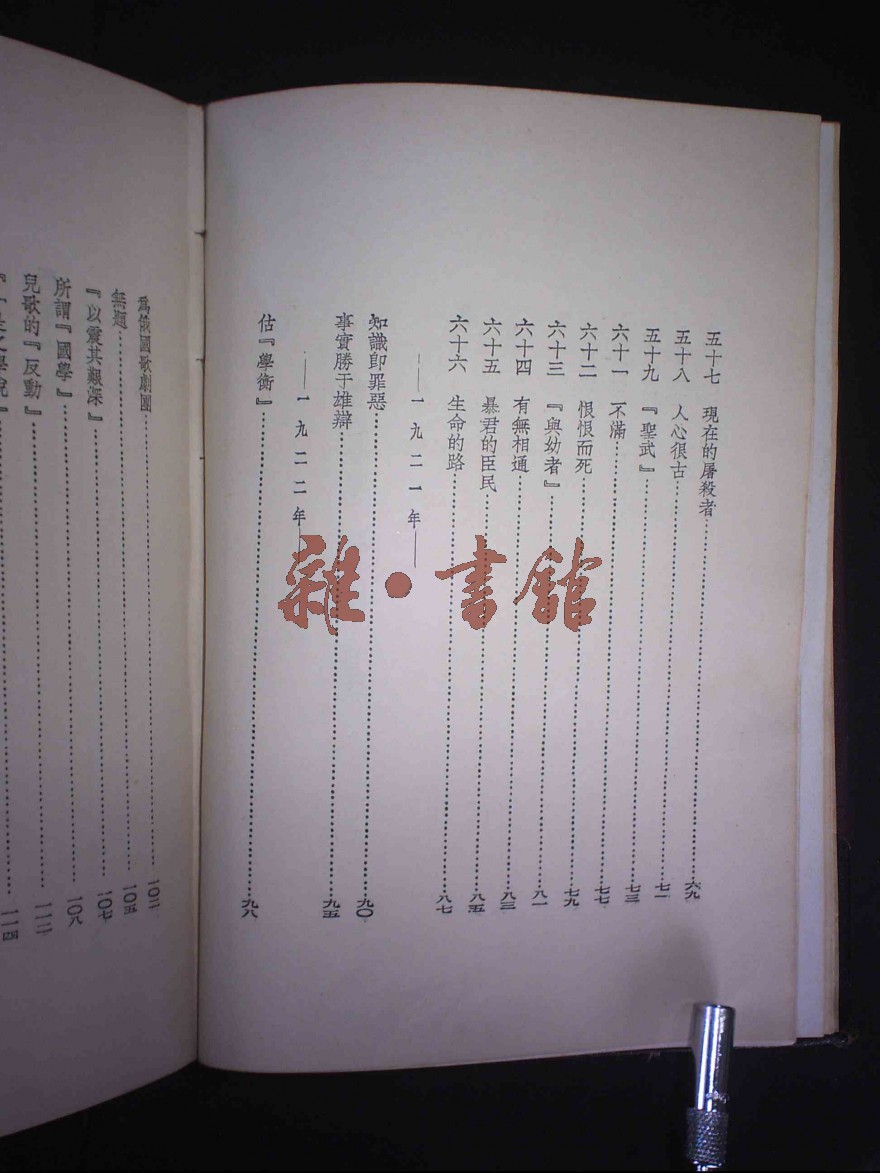 五十七 現在的屠殺者……六九
五十八 人心很古……七一
五十九 『聖武』……七三
六十一 不滿……七七
六十二 恨恨而死……七九
六十三 『與幼者』……八一
六十四 有無相通……八三
六十五 暴君的臣民……八五
六十六 生命的路……八七
——一九二一年——
知識即罪惡……九〇
事實勝于雄辯……九五
——一九二二年——
估『學衡』……九八
爲俄國歌劇團……一〇二
無題……一〇五
『以震其艱深』……一〇七
所謂『國學』……一〇八
兒歌的『反動』……一一二
學說』……一一四
雜·書館